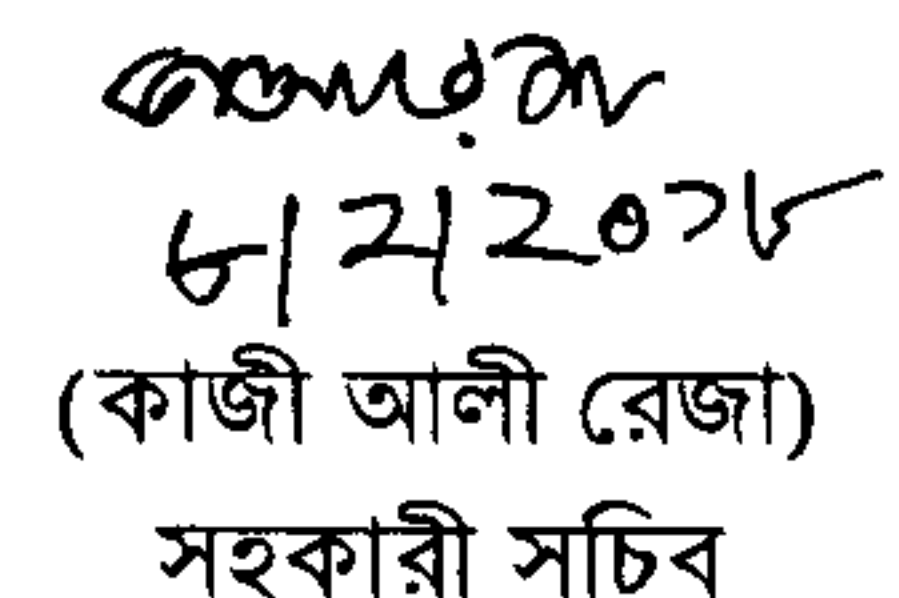 ৮।২।২০১৮
(কাজী আলী রেজা)
সহকারী সচিব